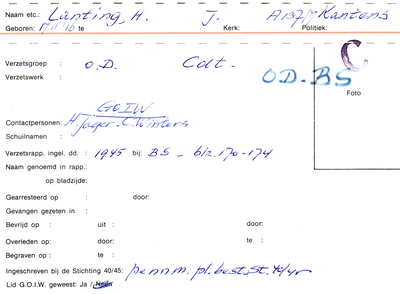 Naam etc.: Lünting, H. J. A137/17 Kantens
Geboren: 17.11.16 te Kerk: Politiek:
C.
Verzetsgroep : O.D. Cdt.
Verzetswerk : O.D.-BS
Foto
GOIW
Contactpersonen: H. Jager - C. Winters
Schuilnamen :
Verzetsrapp. ingel. dd. : 1945 bij: BS - blz. 170-174
Naam genoemd in rapp.:
op bladzijde:
Gearresteerd op : door:
Gevangen gezeten in :
Bevrijd op : uit : door:
Overleden op: door: te :
Begraven op : te :
Ingeschreven bij de Stichting 40/45: penn.m. pl. best. St. 40/45
Lid G.O.I.W. geweest: Ja / Neen